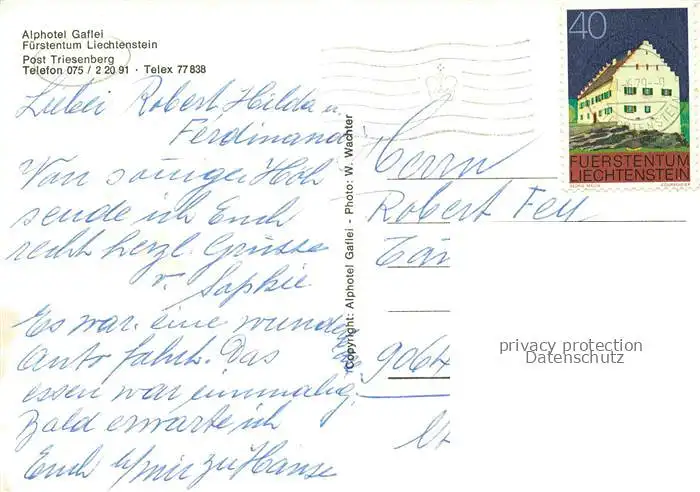 Alphotel Gaflei
Fürstentum Liechtenstein
Post Triesenberg
Telefon 075 / 2 20 91 · Telex 77 838
Liebei Robert Hilda u
Ferdinand
Von soniger Höh
sende ich Euch
recht herzl. Grüsse
v. Sophie
Es war eine wunder
Auto fahrt. Das
essen war einmalig.
Bald erwarte ich
Euch b/mir zu Hause
Copyright: Alphotel Gaflei - Photo: W. Wachter
40
FUERSTENTUM
LIECHTENSTEIN
Herrn
Robert Fey
9064
privacy protection
Datenschutz